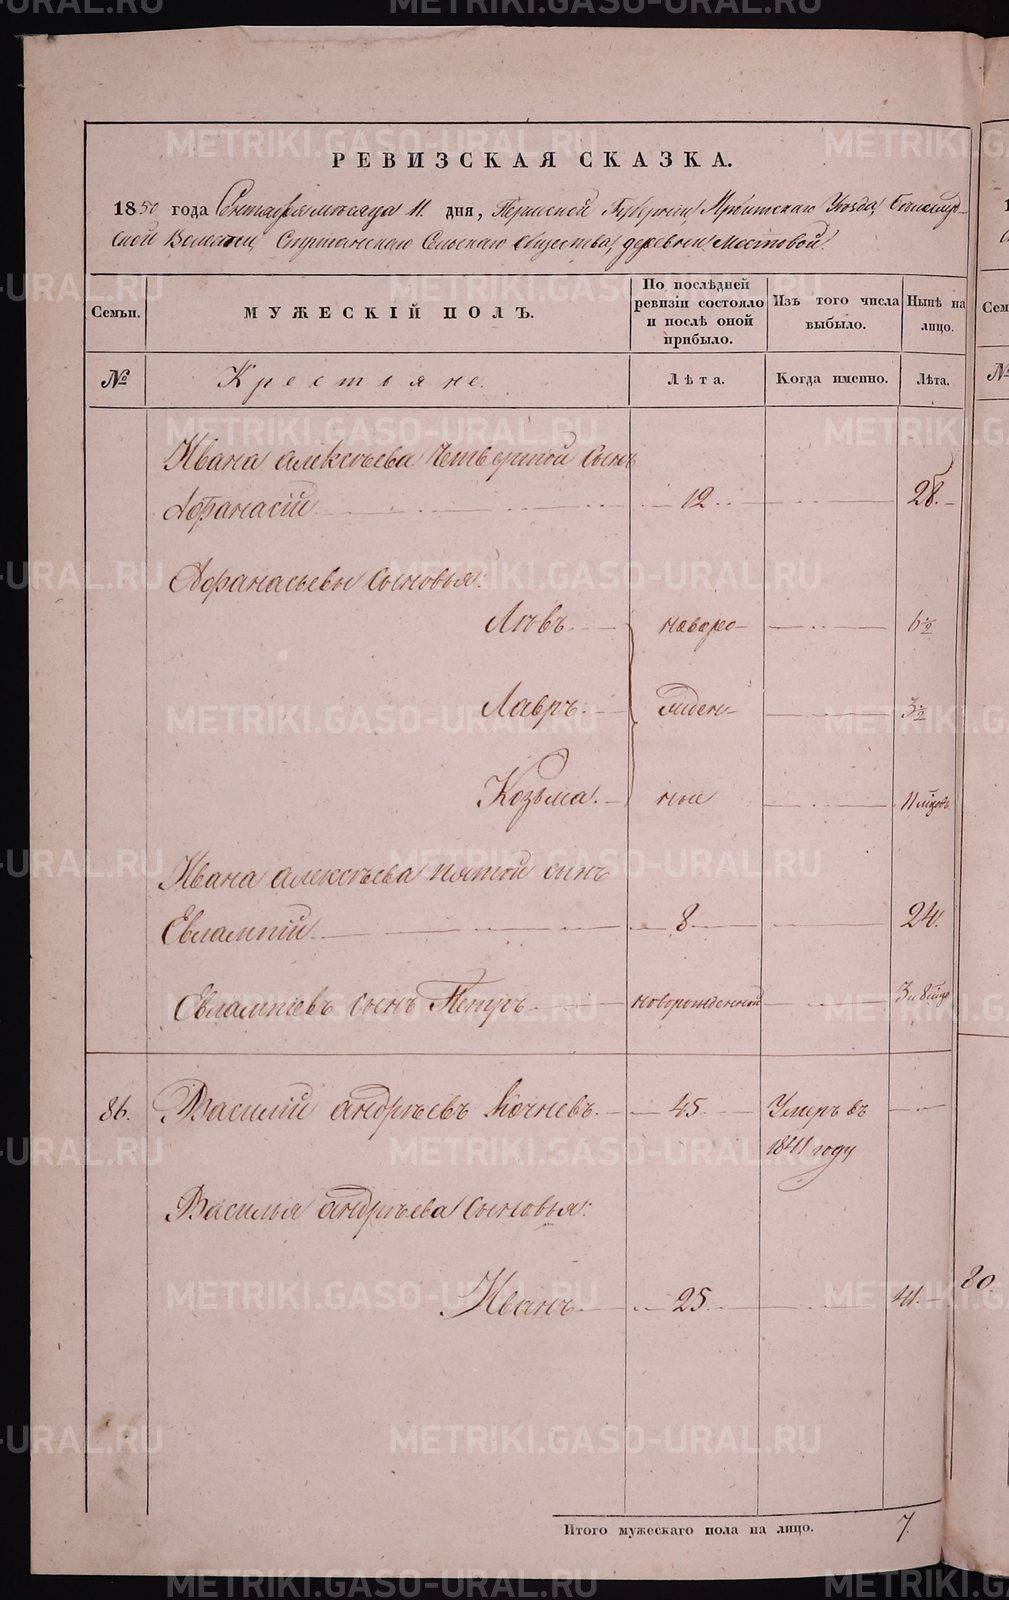 РЕВИЗСКАЯ СКАЗКА.
1850 года Сентября месяца 11 дня, Пермской Губернии Ирбитскаго Уезда,
ской Волости, Сельскаго общества, деревни Мостовой.
Семьи.
МУЖЕСКІЙ ПОЛЪ.
По послѣдней ревизіи состояло и послѣ оной прибыло.
Изъ того числа выбыло.
Нынѣ на лицо.
№
Крестьяне.
Лѣта.
Когда именно.
Лѣта.
Ивана Алексѣева четвертой сынъ
Афанасій 12 28
Афанасьевы сыновья:
Лѣвъ новоро- 6 ½
Лавръ жден- 3 ½
Козьма ные 11
Ивана Алексѣева пятой сынъ
Евлампій 8 24.
Евлампіевъ сынъ Петръ новорожденной 3 и 8
86. Василій Андрѣевъ Кочневъ 45 Умеръ въ
1841 году
Василья Андрѣева сыновья:
Иванъ 25 41
Итого мужескаго пола на лицо. 7.
80.
METRIKI.GASO-URAL.RU